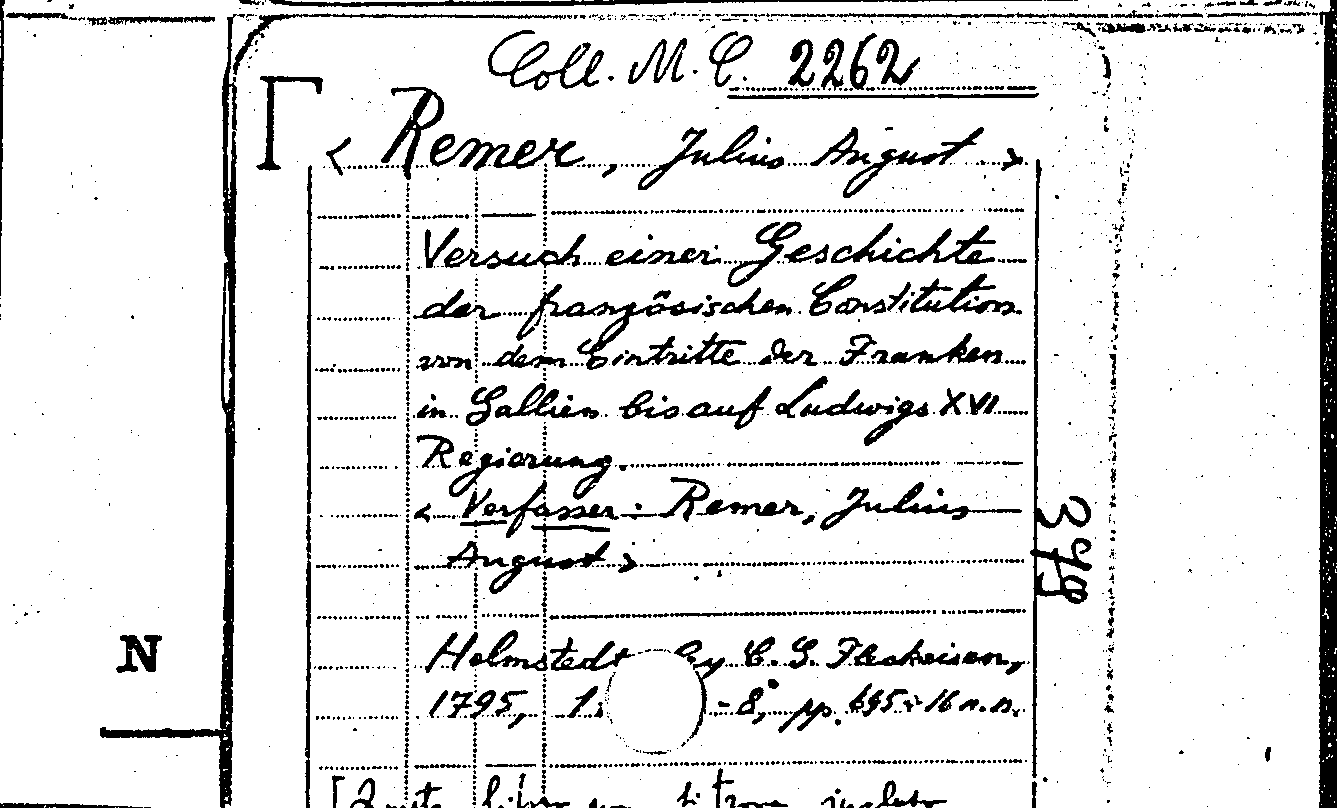 Coll. M. C. 2262
< Remer, Julius August >
Versuch einer Geschichte
der französischen Constitution
von dem Eintritte der Franken
in Gallien bis auf Ludwigs XVI
Regierung.
< Verfasser: Remer, Julius
August >
379
Helmstedt C. G. Fleckeisen,
N
1795, 1. - 8°, pp. 695 + 16 n.n.